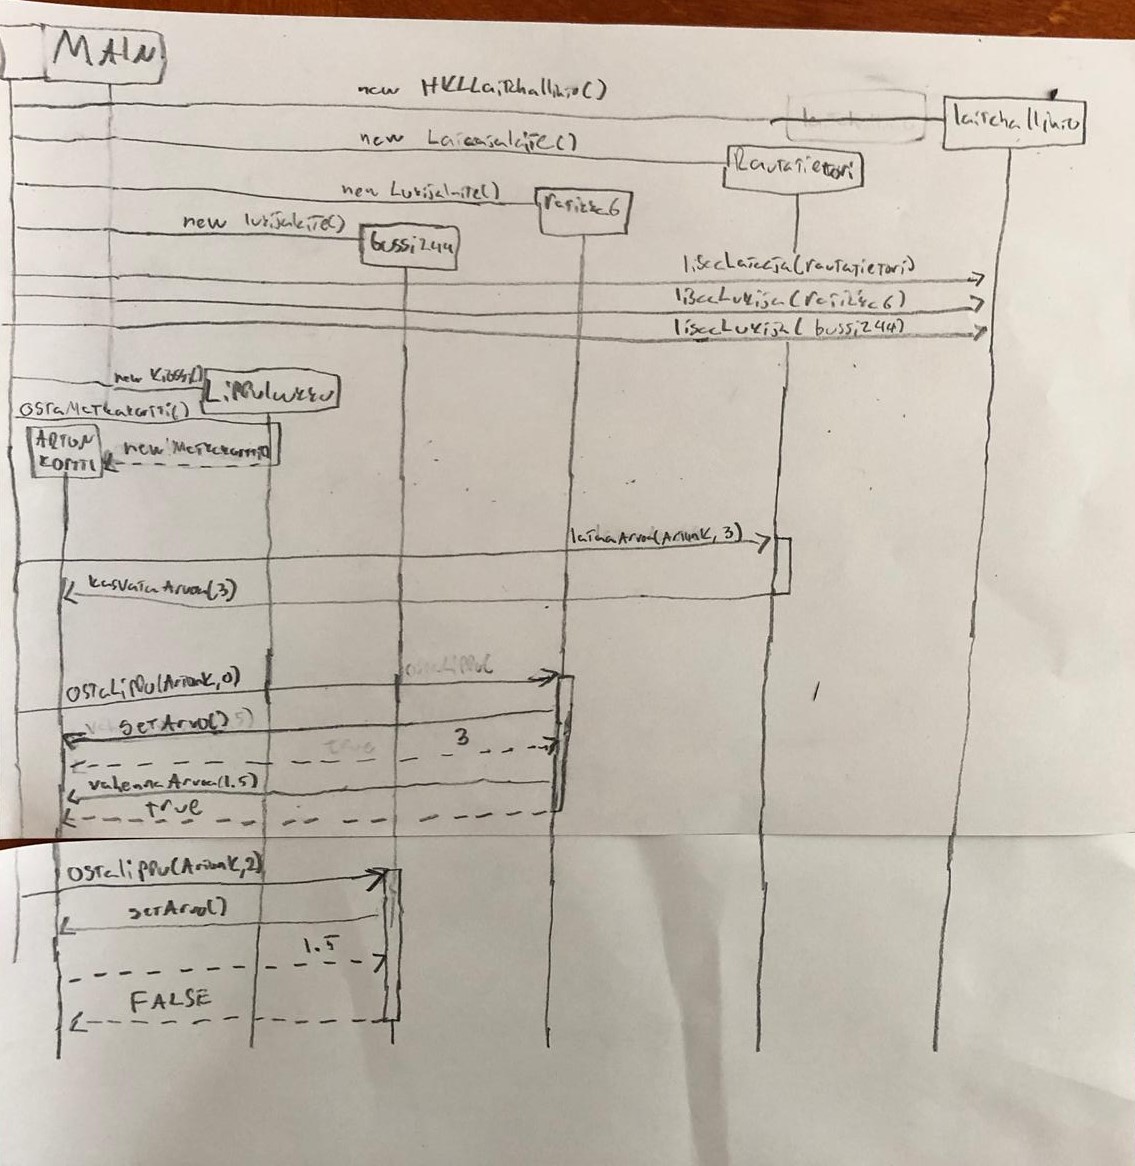 MAIN
new HKLLaitehallinto()
laitehallinto
new Lataajalaite()
Rautatietori
new Lukijalaite()
ratikka6
new lukijalaite()
bussi244
lisaaLataaja(rautatietori)
lisaaLukija(ratikka6)
lisaaLukija( bussi244)
new Kioski()
Lippuluukku
ostaMatkakortti()
ARTUN
KORTTI
new Matkakortti()
lataaArvoa(ArtunK, 3)
kasvataArvoa(3)
ostaLippu(ArtunK,0)
getArvo()
3
true
vahennaArvoa(1.5)
true
ostaLippu(ArtunK,2)
getArvo()
1.5
FALSE